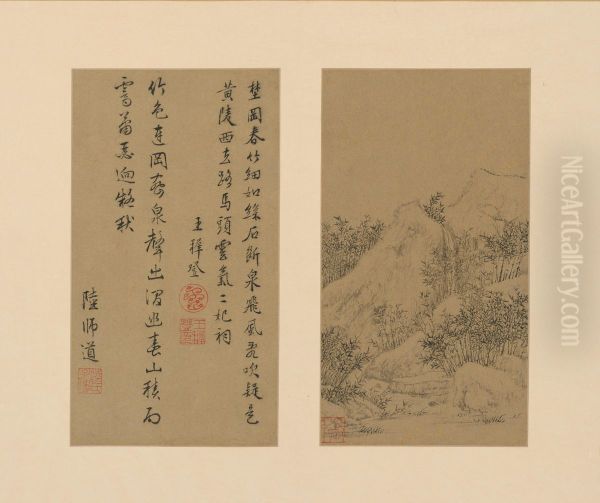 楚岡春竹細如絲石斷泉飛風亂吹疑是
黃陵西去路馬頭雲氣二妃祠
王穉登
竹色連岡密泉聲出澗幽春山積雨
霽蕭瑟迥秋
陸師道
NiceArtGallery.com